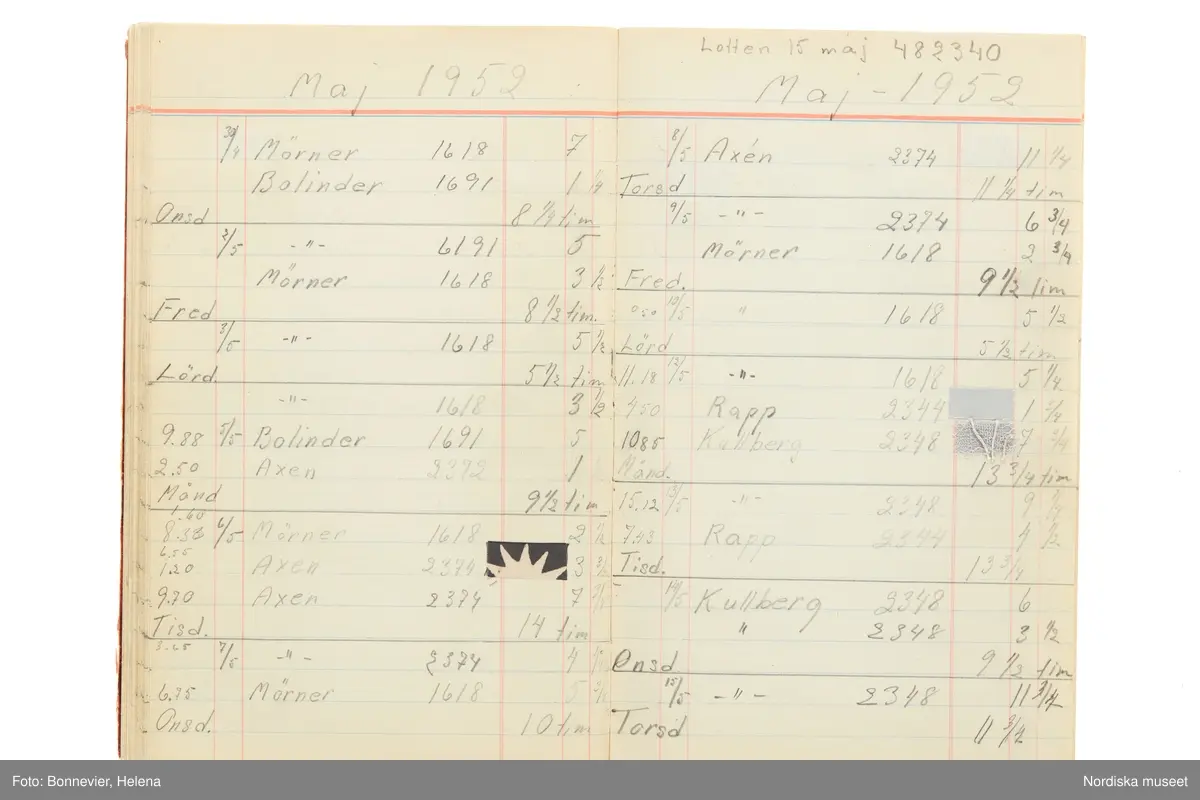 Maj 1952
30/4 Mörner 1618 7
Bolinder 1691 1 1/4
Onsd 8 1/4 tim
2/5 -"- 6191 5
Mörner 1618 3 1/2
Fred 8 1/2 tim.
3/5 -"- 1618 5 1/2
Lörd. 5 1/2 tim
-"- 1618 3 1/2
9.88 5/5 Bolinder 1691 5
2.50 Axen 2372 1
Månd 9 1/2 tim
1.60
8.33 6/5 Mörner 1618 2 1/2
6.55
1.20 Axen 2374 3
9.70 Axen 2374 7
Tisd. 14 tim
7/5 -"- 2374 4
6.75 Mörner 1618 5
Onsd. 10 tim
Lotten 15 maj 482340
Maj - 1952
8/5 Axén 2374 11 1/4
Torsd 11 1/4 tim
9/5 -"- 2374 6 3/4
Mörner 1618 2 3/4
Fred. 9 1/2 tim
10/5 " 1618 5 1/2
Lörd 5 1/2 tim
11.18 12/5 -"- 1618 5 1/4
4.50 Rapp 2344 1
1085 Kullberg 2348 7
Månd. 13 3/4 tim
15.12 13/5 -"- 2348 9
7.43 Rapp 2344 4 1/2
Tisd. 13 3/4
14/5 Kullberg 2348 6
" 2348 3 1/2
Onsd 9 1/2 tim
15/5 -"- 2348 11 3/4
Torsd 11 3/4
Foto: Bonnevier, Helena
Nordiska museet